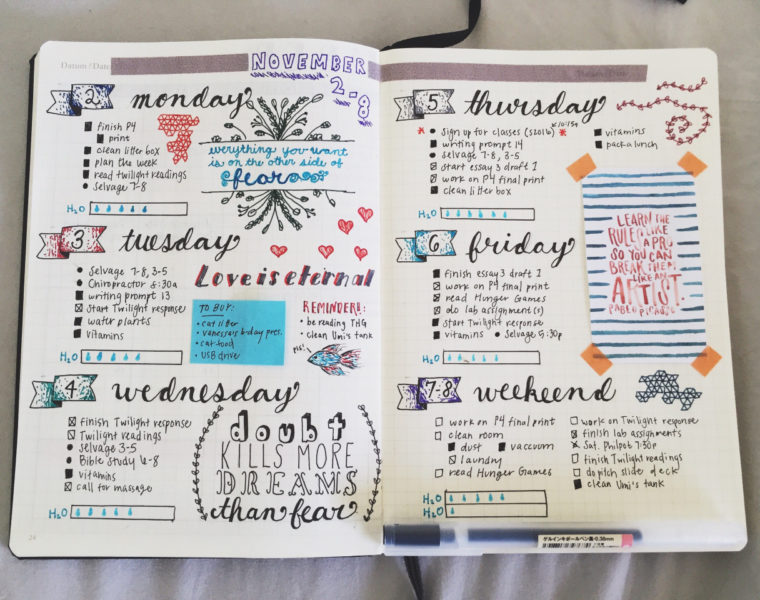 Datum / Date
NOVEMBER
2-8
2 monday
finish P4
print
clean litter box
plan the week
read twilight readings
selvage 7-8
H2O
everything you want
is on the other side of
fear
3 tuesday
selvage 7-8, 3-5
Chiropractor 8:30a
writing prompt 13
Start Twilight response
water plants
vitamins
H2O
Love is eternal
TO BUY:
cat litter
vanessa's b-day pres.
cat food
USB drive
REMINDERS:
be reading THG
clean Uni's tank
4 wednesday
finish Twilight response
Twilight readings
selvage 3-5
Bible Study 6-8
vitamins
call for massage
H2O
doubt
KILLS MORE
DREAMS
than fear
24
5 thursday
Sign up for classes (S2016) 10:15a
writing prompt 14
selvage 7-8, 3-5
start essay 3 draft 1
work on P4 final print
clean litter box
vitamins
pack a lunch
H2O
LEARN THE
RULES LIKE
A PRO
SO YOU CAN
BREAK THEM
LIKE AN
ARTIST.
PABLO PICASSO
6 friday
finish essay 3 draft 1
work on P4 final print
read Hunger Games
do lab assignment(s)
start Twilight response
vitamins
selvage 5:30p
H2O
7-8 weekend
work on P4 final print
clean room
dust
vaccuum
laundry
read Hunger Games
work on Twilight response
finish lab assignments
Sat. Philpot 7:30p
finish Twilight readings
do pitch slide deck
clean Uni's tank
H2O
H2O
ゲルインキボールペン 0.38mm